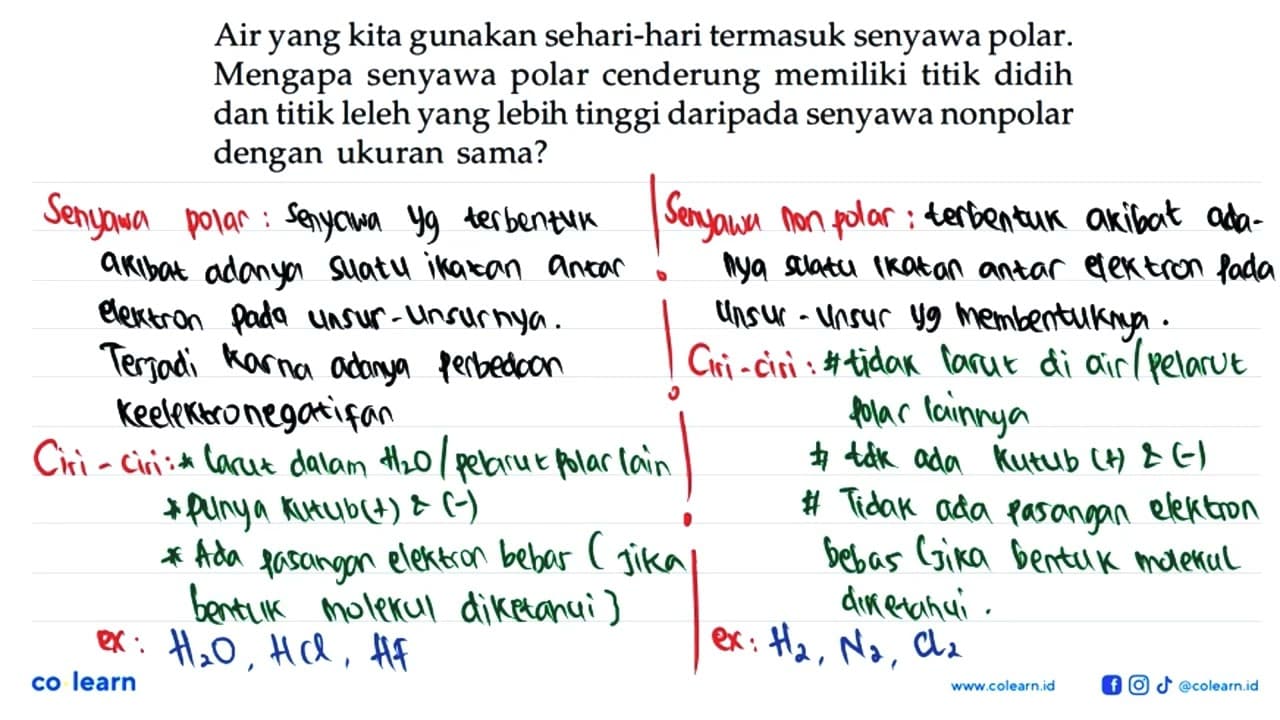 Air yang kita gunakan sehari-hari termasuk senyawa polar.
Mengapa senyawa polar cenderung memiliki titik didih
dan titik leleh yang lebih tinggi daripada senyawa nonpolar
dengan ukuran sama?
Senyawa polar : senyawa yg terbentuk
akibat adanya suatu ikatan antar
elektron pada unsur-unsurnya.
Terjadi karna adanya perbedaan
keelektronegatifan
Ciri - ciri : * larut dalam H2O / pelarut polar lain
* punya kutub (+) & (-)
* Ada pasangan elektron bebas ( jika
bentuk molekul diketahui )
ex : H2O , HCl , HF
Senyawa non polar : terbentuk akibat ada-
nya suatu ikatan antar elektron pada
unsur - unsur yg membentuknya .
Ciri - ciri : # tidak larut di air / pelarut
polar lainnya
# tdk ada kutub (+) & (-)
# Tidak ada pasangan elektron
bebas (jika bentuk molekul
diketahui .
ex : H2 , N2 , Cl2
co learn
www.colearn.id
@colearn.id